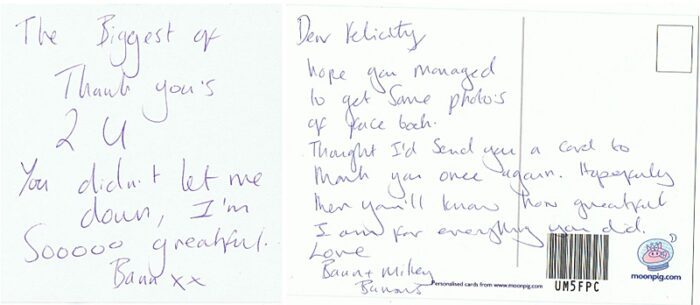 The Biggest of
Thank you's
2 U
You didn't let me
down, I'm
Sooooo greatful.
xx
Dear Felicity
hope you managed
to get some photo's
of face book.
Thought I'd send you a card to
thank you once again. Hopefully
then you'll know how greatful
I am for everything you did.
Love
+ Mikey
Personalised cards from www.moonpig.com
UM5FPC
moonpig.com